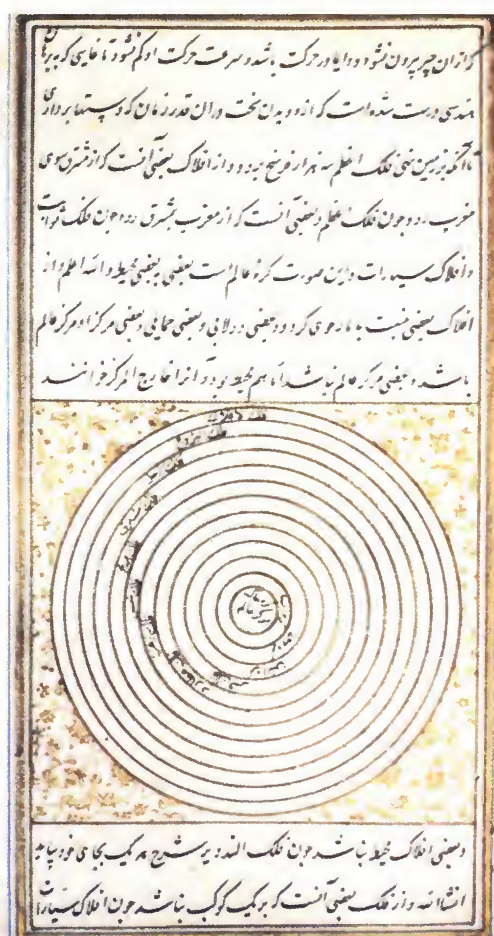 کزان چیز بیرون نشود و دایما در حرکت باشد و سرعت حرکت او کم نشود تا غایتی که ببرهان
هندسی درست شده است که از دویدن سخت در آن قدر زمان که دستها بردارد
تا آنکه بر زمین نهی فلک اعظم سه هزار فرسنخ برود و از افلاک بعضی آنست که از مشرق سوی
مغرب رود چون فلک اعظم و بعضی آنست که از مغرب بمشرق رود چون فلک ثوابت
و افلاک سیارات و این صورت کره عالم است بعضی ببعضی محیط والله اعلم و از
افلاک بعضی نسبت با ما رحوی گردد و بعضی دولابی و بعضی حمایلی و بعضی مرکز او مرکز عالم
باشد و بعضی مرکز عالم نباشد اما هم محیط بود آنرا خارج المرکز خوانند
فلک الافلاک
فلک البروج
فلک زحل
فلک مشتری
مرکز عالم
و بعضی افلاک محیط نباشد چون فلک التدویر شرح هر یک بجای خود بیاید
انشاالله و از فلک بعضی آنست که بر یک کوکب نباشد چون افلاک سیارات